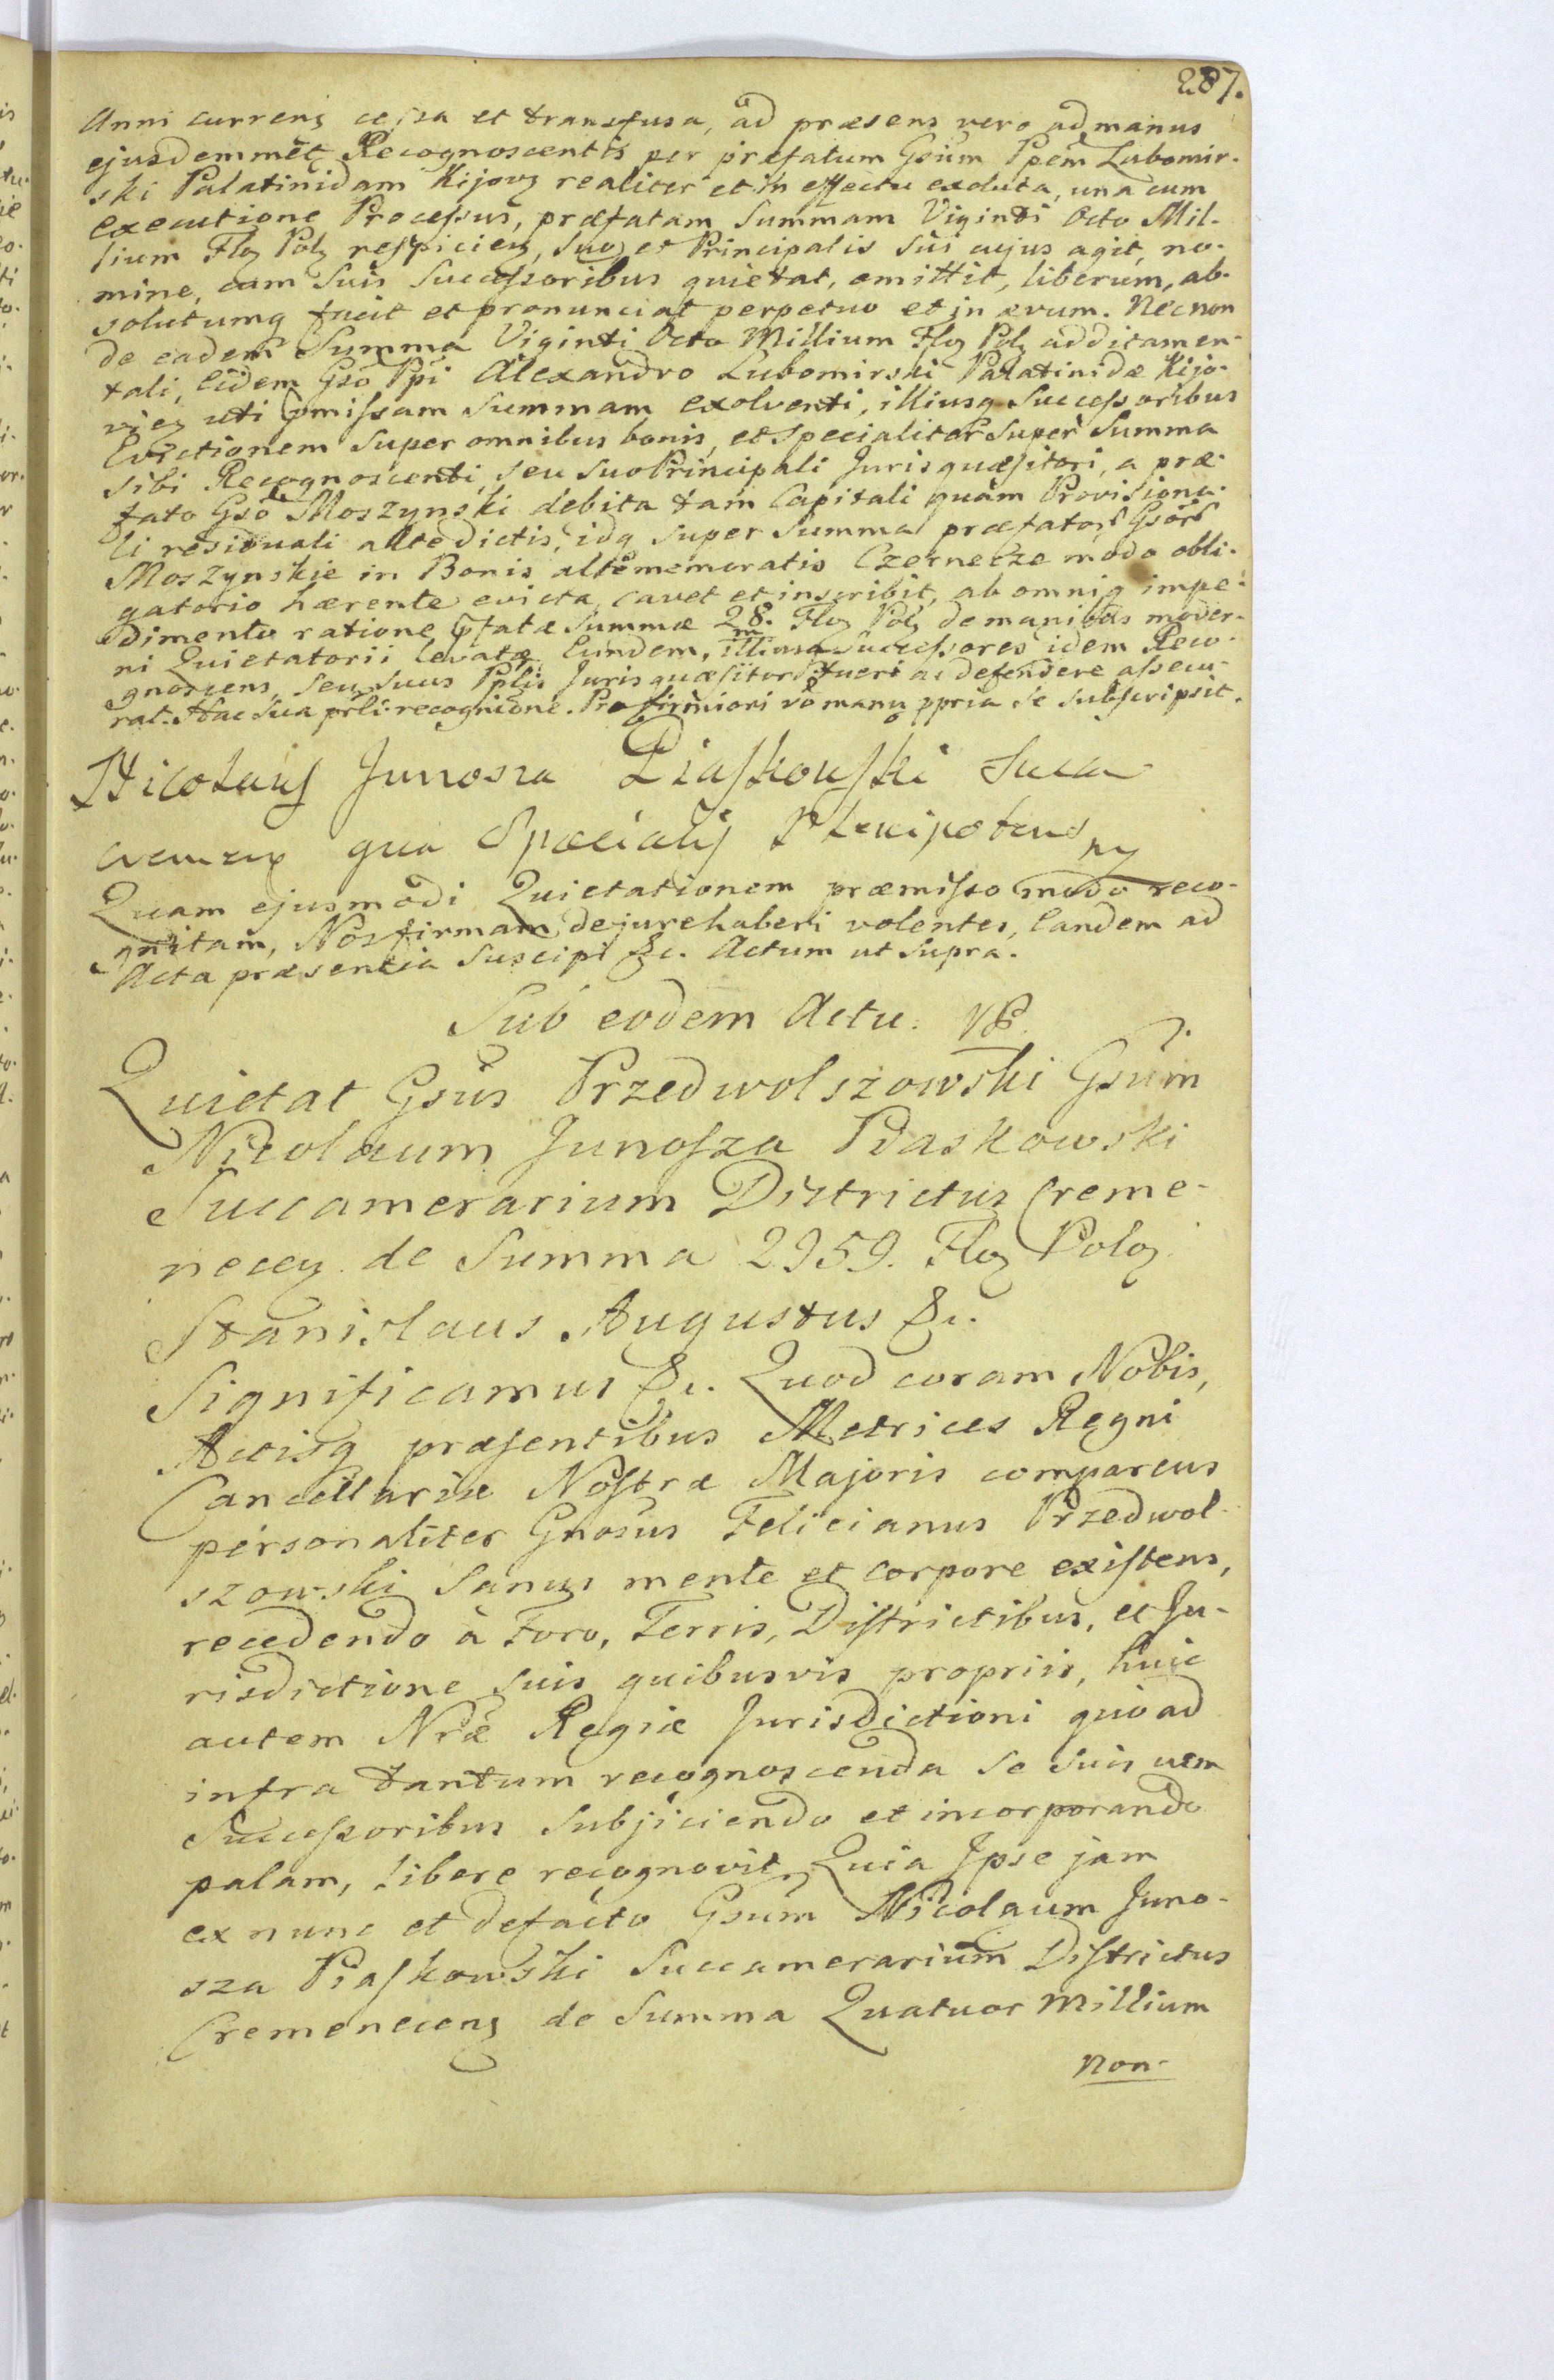 287.
Anni currenz cessa et transfusa, ad præsens vero ad manus
ejusdemmet Recognoscentis per præfatum Gsum Ppem Lubomir-
ski Palatinidam Kijovz realiter et in effectu exoluta, una cum
executione Processus, præfatam Summam Viginti Octo Mil-
lium Floz Polz respiciez, Suoz et Principalis sui cujus agit, no-
mine, cum Suis Successoribus quietat, omittit, liberum, ab-
solutumq facit et pronunciat perpetuo et in ævum. Necnon
de eadem Summa Viginti Octo Millium Floz Polz additamen-
tali, eidem Gso Ppi Alexandro Lubomirski Palatinidæ Kijo-
viez uti pmissam Summam exolventi, illiusq Successoribus
Evictionem super omnibus bonis, et specialiter super Summa
sibi Recognoscenti, seu suo Principali Juris quæsitori, a præ-
fato Gso Moszynski debita tam Capitali quam Provisiona-
li residuali altedictis, idq super Summa præfator Gsor
Moszynskie in Bonis altememoratis Czernecze modo obli-
gatorio hærente evicta, cavet et inscribit, ab omniq impe-
dimento ratione pfatæ Summæ 28.m Floz Polz de manibus moder-
ni Quietatorii levatæ Eundem, illiusq Successores idem Reco-
gnoscens, seu suus Pplis Juris quæsitor tueri ac defendere assecu-
rat. Hac sua prli recognione. Pro firmiori ro manu ppria se subscripsit.
Nicolaus Junosza Piaskowski Succa
qua Specialis Plenipotens
mp
Quam ejusmodi Quietationem præmisso modo reco-
gnitam, Nos firmam de jure haberi volentes, Eandem ad
Acta præsentia Suscipi &c. Actum ut supra.
Sub eodem Actu.
Quietat Gsus Przedwolszowski Gsum
Nicolaum Junosza Piaskowski
Succamerarium Districtus Creme-
necez de Summa 2959. Floz Poloz
Stanislaus Augustus &c.
Significamus &c. Quod coram Nobis,
Actisq præsentibus Metrices Regni
Cancellariæ Nostræ Majoris comparens
personaliter Gnosus Felicianus Przedwol-
szowski Sanus mente et corpore existens,
recedendo à Foro, Terris, Districtibus, et Ju-
risdictione suis quibusvis propriis, huic
autem Nræ Regiæ Jurisdictioni quo ad
infra tantum recognoscenda se suis uem
Successoribus subjiciendo et incorporando
palam, libere recognovit, Quia Ipse jam
ex nunc et defacto Gsum Nicolaum Juno-
sza Piaskowski Succamerarium Districtus
Cremenecenz de Summa Quatuor Millium
non-